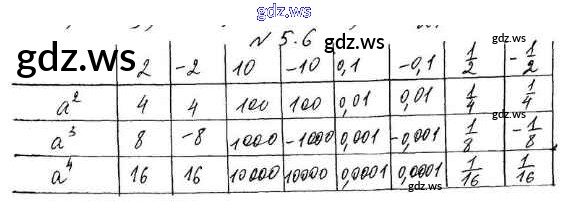 gdz.ws
N 5.6
gdz.ws
gdz.ws
2 -2 10 -10 0,1 -0,1 1/2 -1/2
a² 4 4 100 100 0,01 0,01 1/4 1/4
a³ 8 -8 1000 -1000 0,001 -0,001 1/8 -1/8
a⁴ 16 16 10000 10000 0,0001 0,0001 1/16 1/16
gdz.ws
gdz.ws